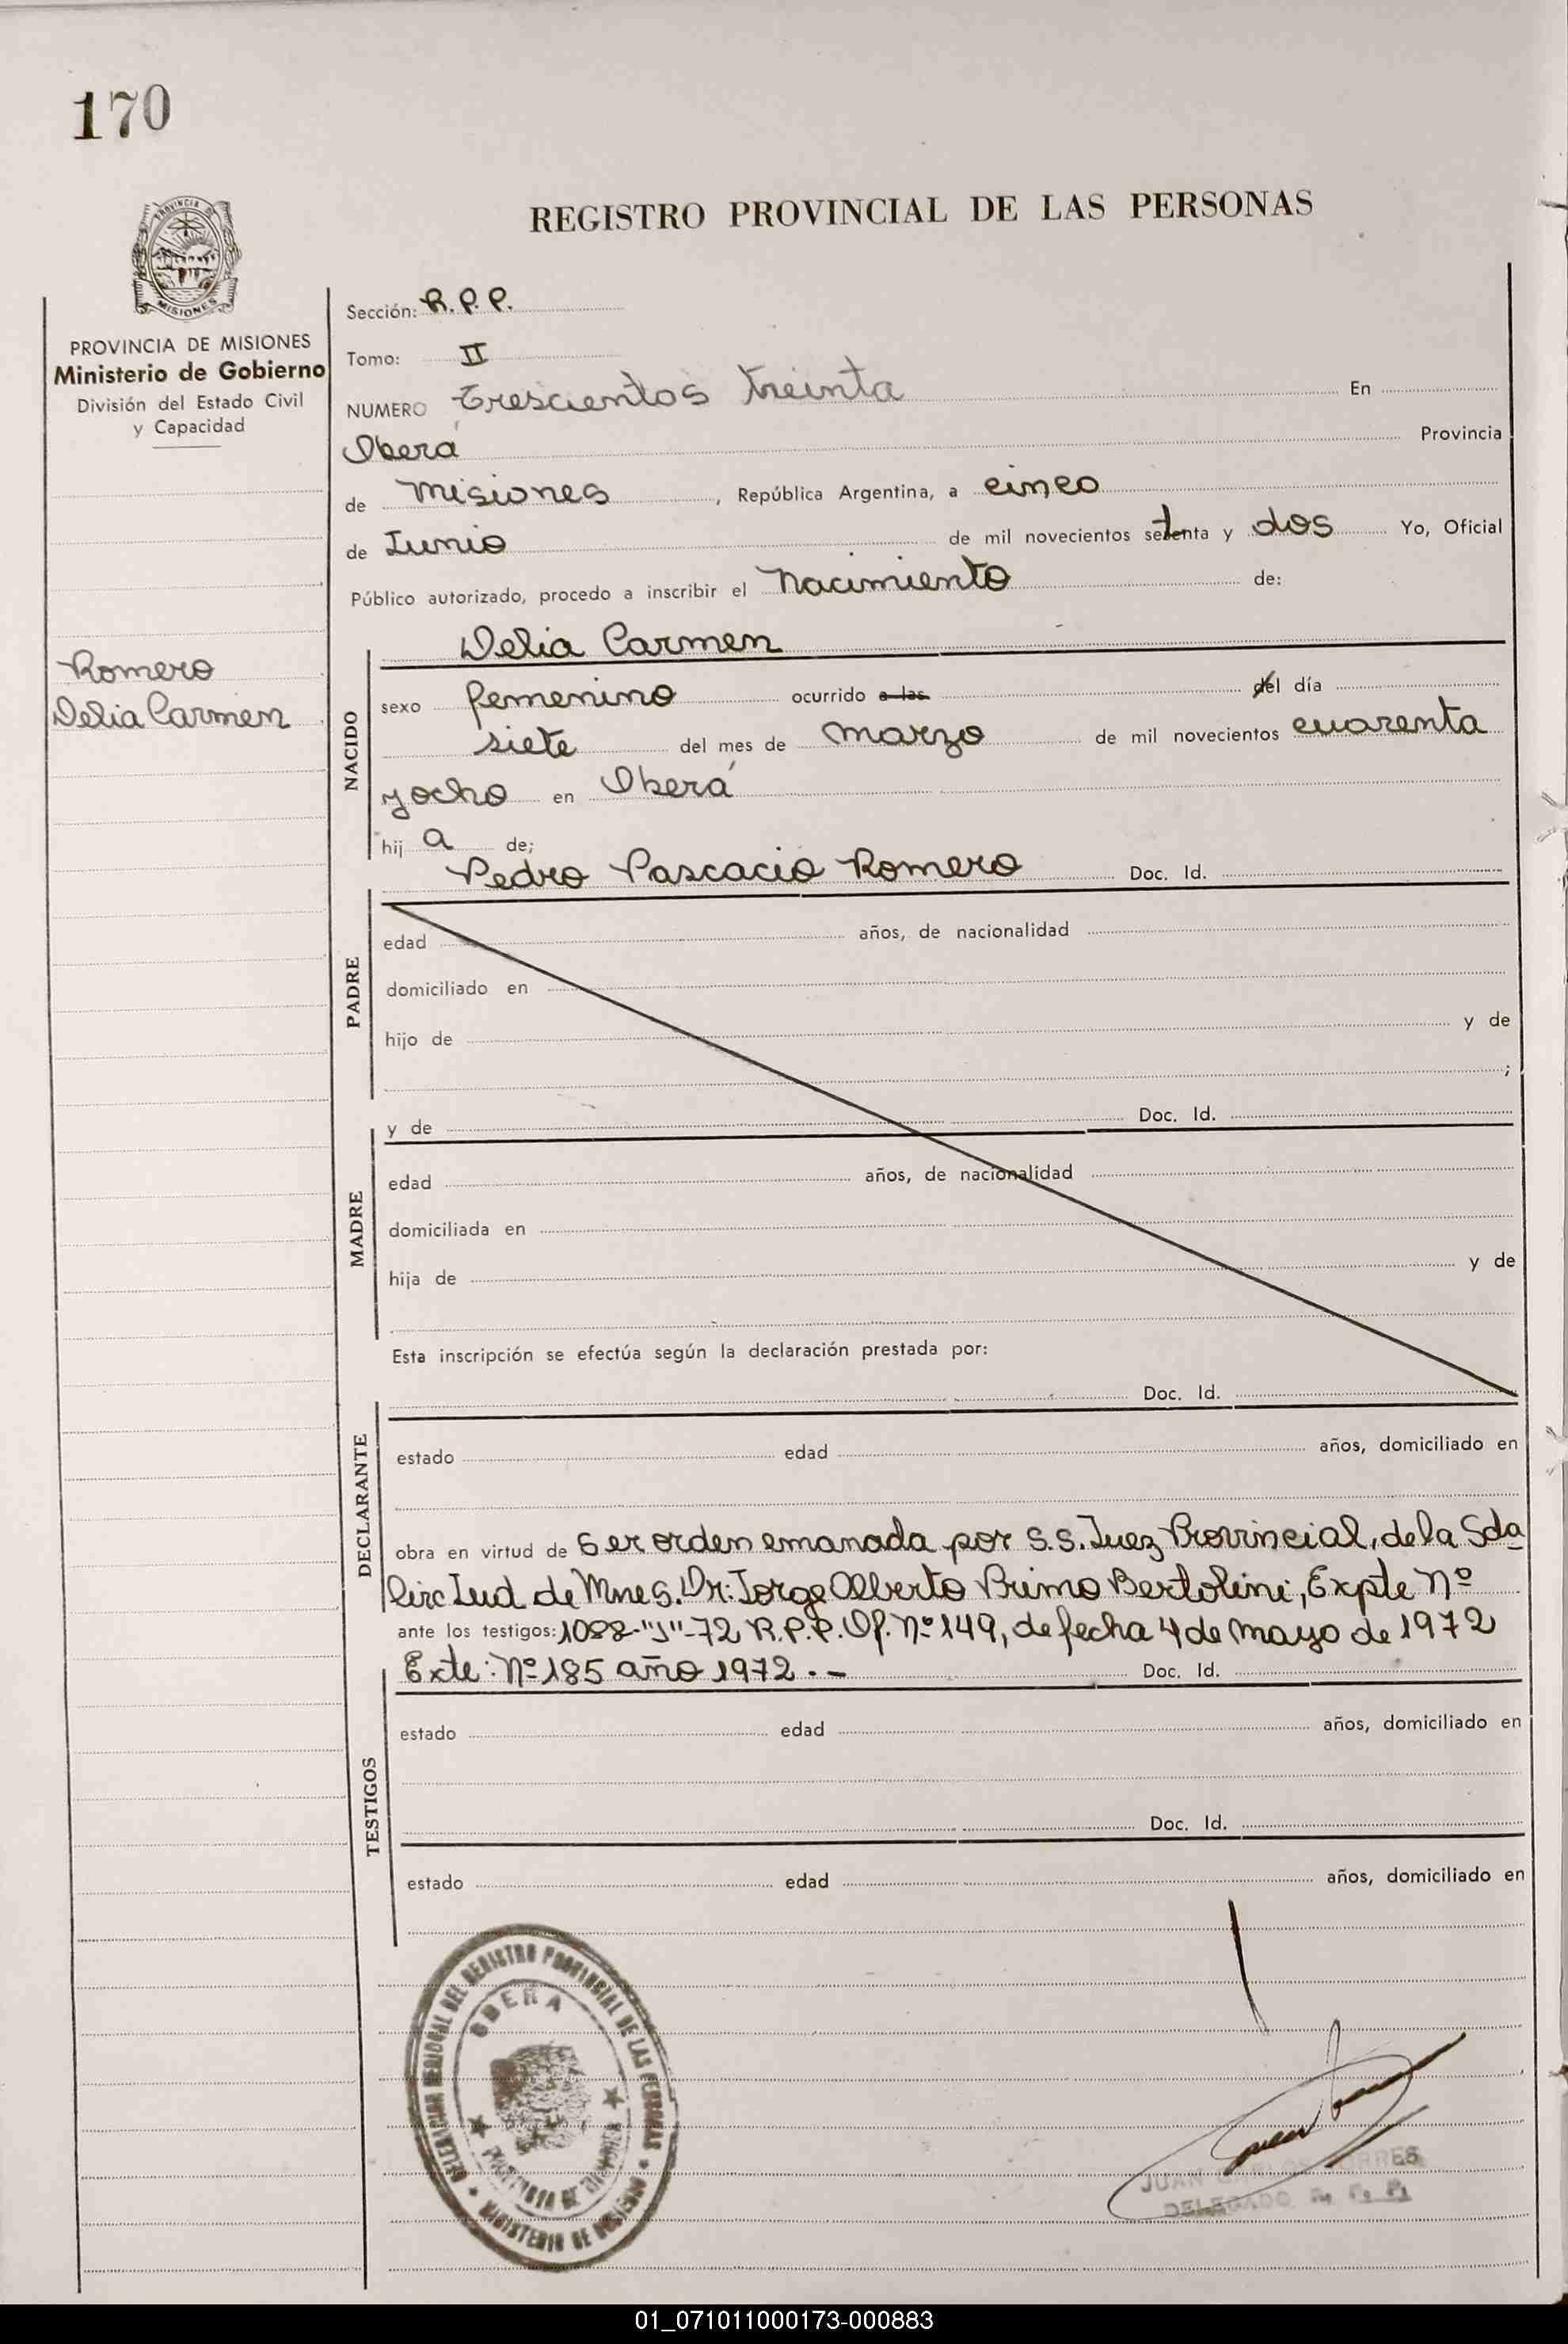 170
PROVINCIA DE
MISIONES
REGISTRO PROVINCIAL DE LAS PERSONAS
PROVINCIA DE MISIONES
Ministerio de Gobierno
División del Estado Civil
y Capacidad
Romero
Delia Carmen
Sección: R.P.P.
Tomo: II
NUMERO Trescientos treinta En
Oberá Provincia
de Misiones, República Argentina, a cinco
de Junio de mil novecientos setenta y dos Yo, Oficial
Público autorizado, procedo a inscribir el Nacimiento de:
NACIDO
Delia Carmen
sexo femenino ocurrido a las del día
siete del mes de marzo de mil novecientos cuarenta
y ocho en Oberá
hij a de;
PADRE
Pedro Pascacio Romero Doc. Id.
edad años, de nacionalidad
domiciliado en
hijo de y de
;
MADRE
y de Doc. Id.
edad años, de nacionalidad
domiciliada en
hija de y de
Esta inscripción se efectúa según la declaración prestada por:
DECLARANTE
Doc. Id.
estado edad años, domiciliado en
obra en virtud de Ser orden emanada por S.S. Juez Provincial, de la Sda
Circ Jud de Mnes. Dr: Jorge Alberto Primo Bertolini, Expte Nº
ante los testigos: 1088-"J"-72 R.P.P. Of. Nº 149, de fecha 4 de mayo de 1972
Exte: Nº 185 año 1972.-
Doc. Id.
TESTIGOS
estado edad años, domiciliado en
Doc. Id.
estado edad años, domiciliado en
DELEGACION REGIONAL DEL REGISTRO PROVINCIAL DE LAS PERSONAS
OBERA
PROVINCIA DE MISIONES
MINISTERIO DE GOBIERNO
JUAN CARLOS TORRES
DELEGADO R. P. P.
01_071011000173-000883